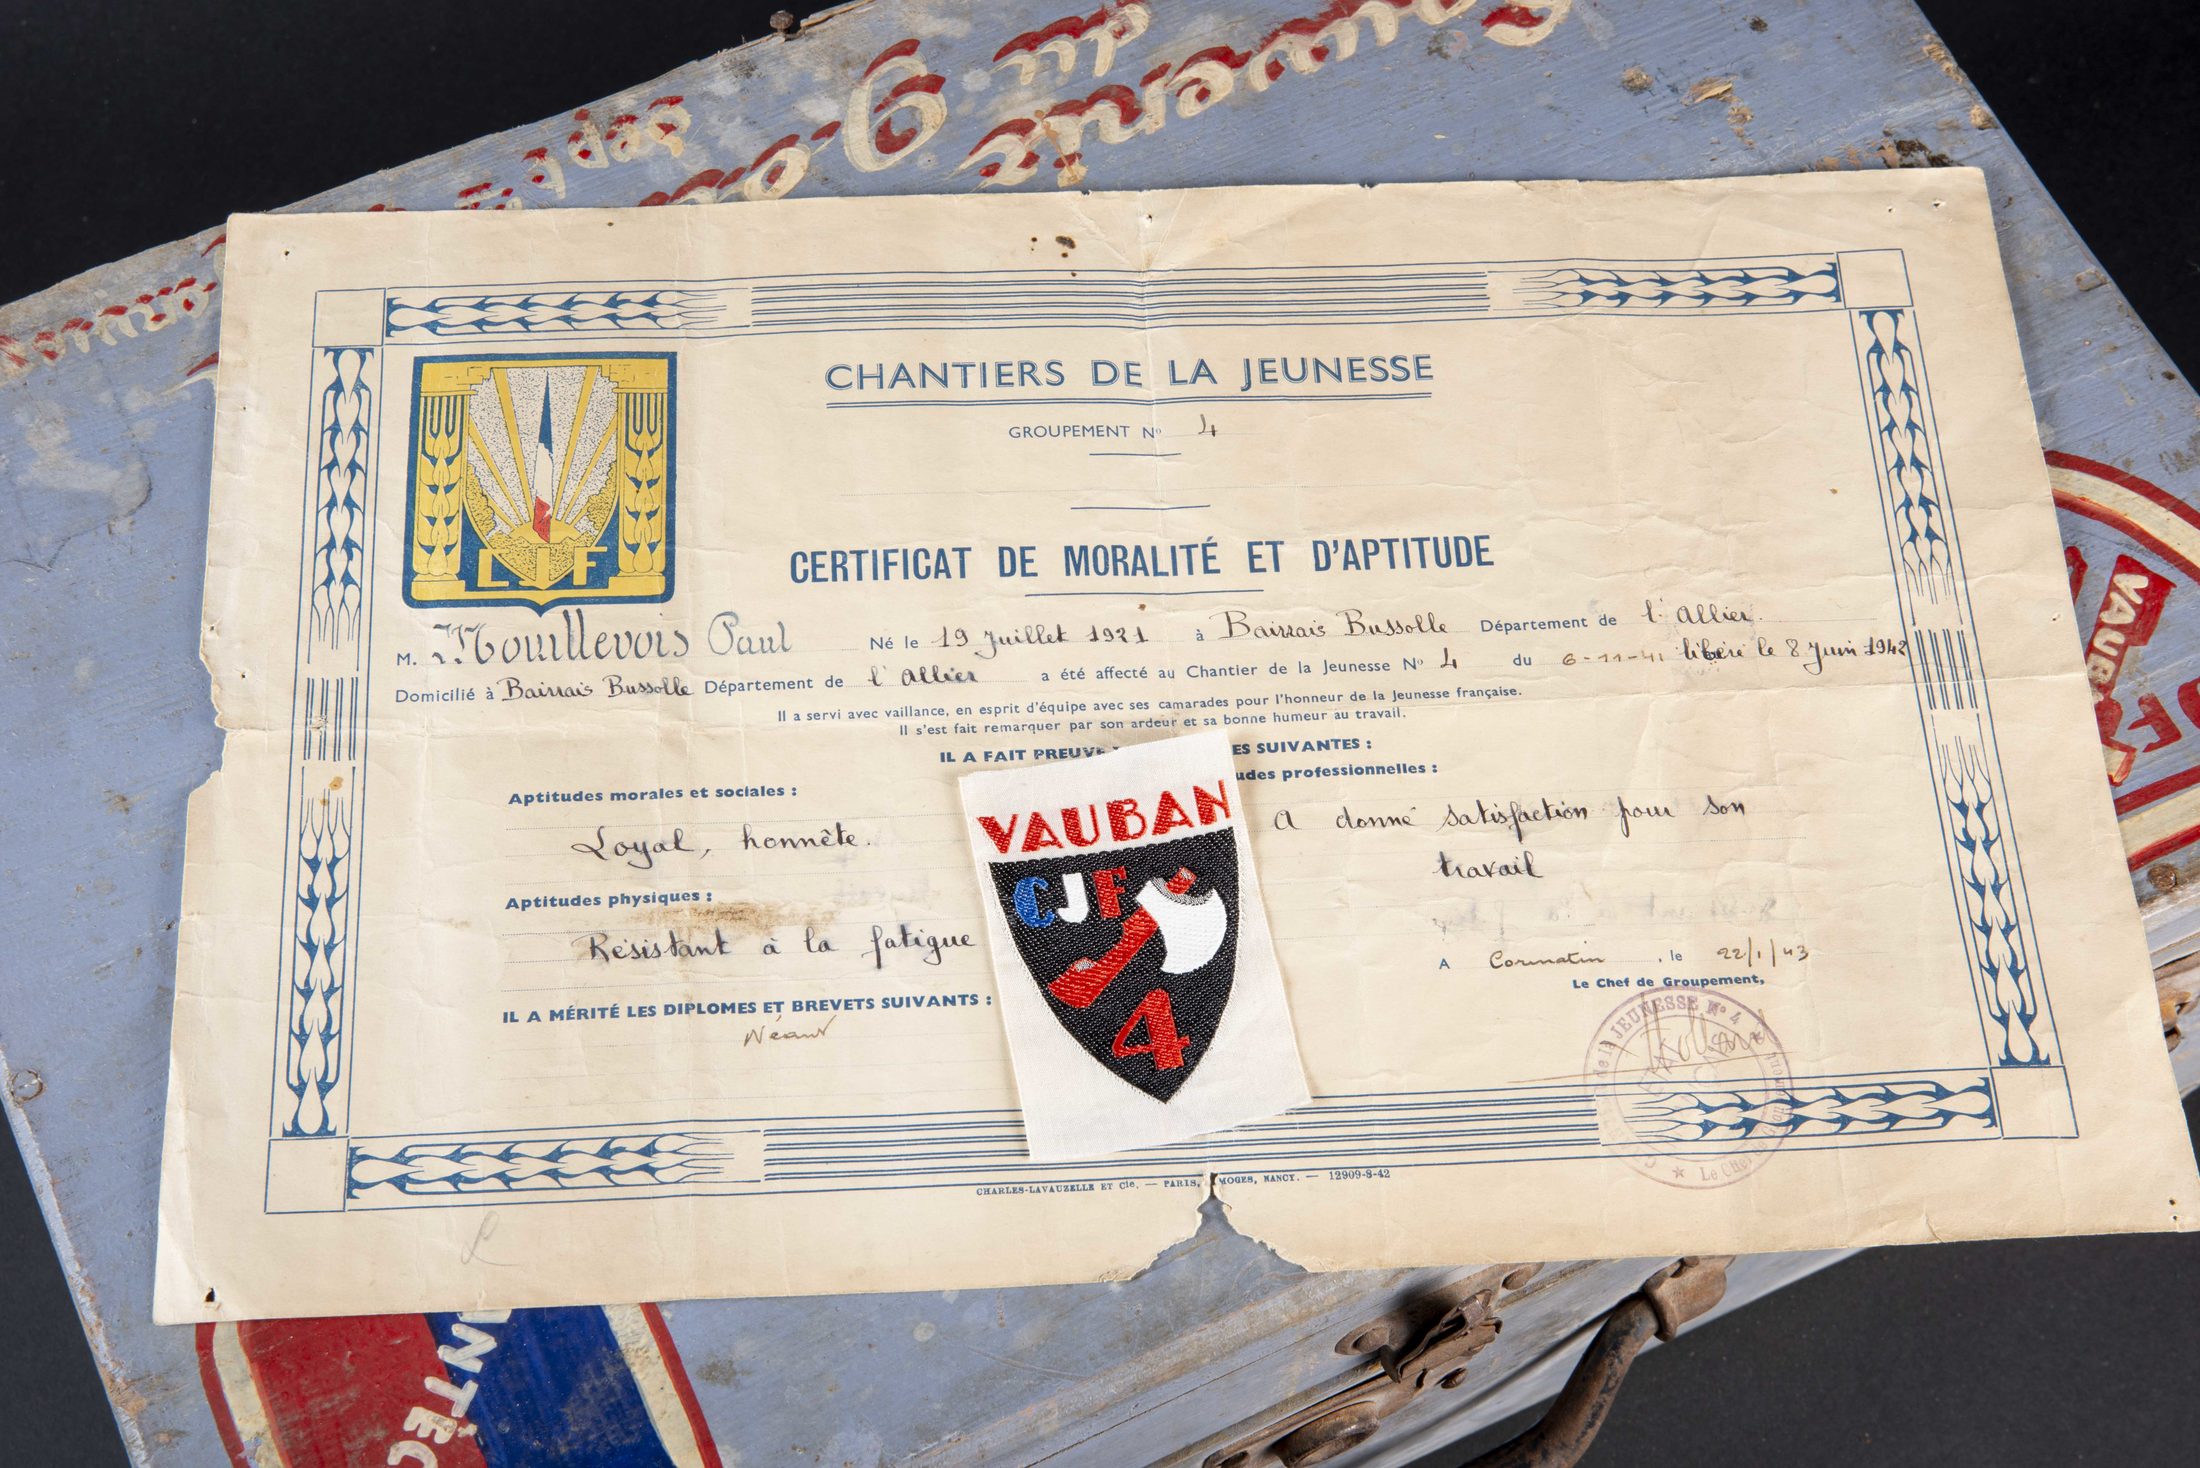 Souvenir
du
9.
Sept
CHANTIERS DE LA JEUNESSE
GROUPEMENT No 4
CERTIFICAT DE MORALITÉ ET D'APTITUDE
LJF
M. Mouillevois Paul Né le 19 Juillet 1921 à Bairrais Bussolle Département de l'Allier.
Domicilié à Bairrais Bussolle Département de l'Allier a été affecté au Chantier de la Jeunesse No 4 du 6-11-41 libéré le 8 Juin 1942
Il a servi avec vaillance, en esprit d'équipe avec ses camarades pour l'honneur de la Jeunesse française.
Il s'est fait remarquer par son ardeur et sa bonne humeur au travail.
IL A FAIT PREUVE ES SUIVANTES :
Aptitudes morales et sociales :
udes professionnelles :
Loyal, honnête.
A donné satisfaction pour son
travail
Aptitudes physiques :
Résistant à la fatigue
IL A MÉRITÉ LES DIPLOMES ET BREVETS SUIVANTS :
Néant
A Cormatin, le 22/1/43
Le Chef de Groupement,
de la JEUNESSE No 4
Le Chef de
CHARLES-LAVAUZELLE ET Cie. — PARIS, MOGES, NANCY. — 12909-8-42
VAUBAN
CJF
4
VAUB